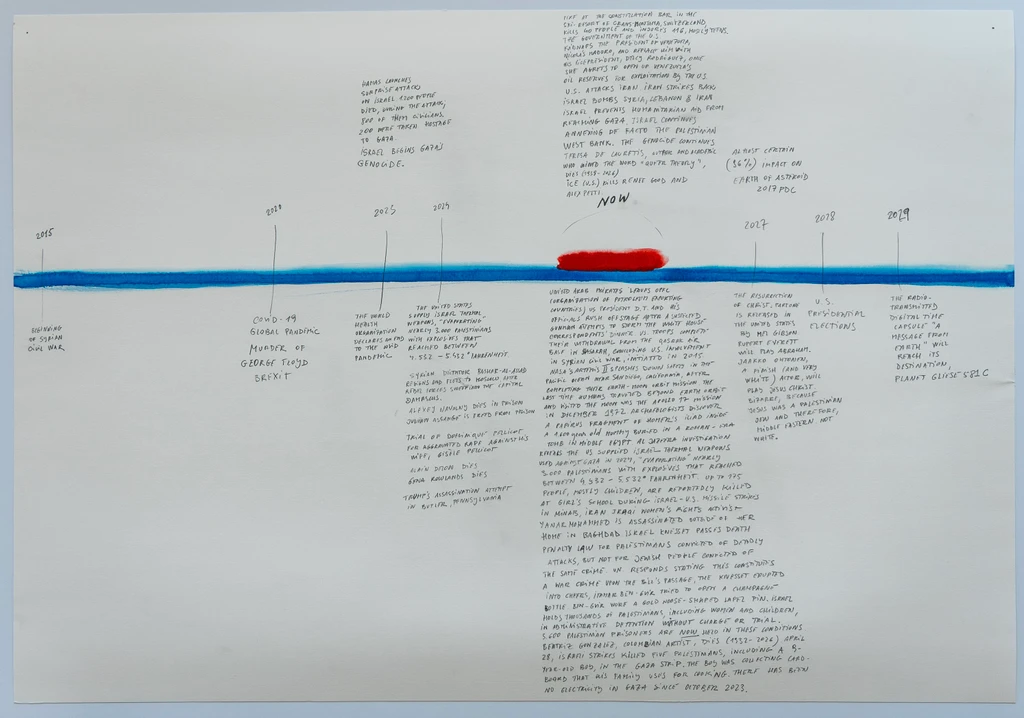 HAMAS LAUNCHES
SURPRISE ATTACKS
ON ISRAEL 1200 PEOPLE
DIED, DURING THE ATTACK,
800 OF THEM CIVILIANS,
200 WERE TAKEN HOSTAGE
TO GAZA.
ISRAEL BEGINS GAZA'S
GENOCIDE.
FIRE AT THE CONSTELLATION BAR IN THE
SKI-RESORT OF CRANS-MONTANA, SWITZERLAND,
KILLS 40 PEOPLE AND INJURES 116, MOSTLY TEENS.
THE GOVERNMENT OF THE U.S.
KIDNAPS THE PRESIDENT OF VENEZUELA,
NICOLÁS MADURO, AND REPLACE HIM WITH
HIS VICEPRESIDENT, DELCY RODRÍGUEZ, ONCE
SHE AGREES TO OPEN UP VENEZUELA'S
OIL RESERVES FOR EXPLOITATION BY THE U.S.
U.S. ATTACKS IRAN. IRAN STRIKES BACK.
ISRAEL BOMBS SYRIA, LEBANON & IRAN
ISRAEL PREVENTS HUMANITARIAN AID FROM
REACHING GAZA. ISRAEL CONTINUES
ANNEXING DE FACTO THE PALESTINIAN
WEST BANK. THE GENOCIDE CONTINUES
TERESA DE LAURETIS, AUTHOR AND
WHO COINED THE WORD "QUEER THEORY",
DIES (1938-2026)
ICE (U.S.) KILLS RENEE GOOD AND
ALEX PETTI.
ALMOST CERTAIN
(96%) IMPACT ON
EARTH OF ASTEROID
2017 PDC
NOW
2015
2020
2023
2024
2027
2028
2029
BEGINNING
OF SYRIAN
CIVIL WAR
COVID-19
GLOBAL PANDEMIC
MURDER OF
GEORGE FLOYD
BREXIT
THE WORLD
HEALTH
ORGANIZATION
DECLARES AN END
TO THE COVID
PANDEMIC
THE UNITED STATES
SUPPLY ISRAEL THERMAL
WEAPONS, "EVAPORATING"
NEARLY 3,000 PALESTINIANS
WITH EXPLOSIVES THAT
REACHED BETWEEN
4.532 - 5.532 °FAHRENHEIT.
SYRIAN DICTATOR BASHAR AL-ASSAD
RESIGNS AND FLEES TO MOSCOW AFTER
REBEL FORCES SURROUND THE CAPITAL
DAMASCUS.
ALEXEJ NAVALNY DIES IN PRISON
JULIAN ASSANGE IS FREED FROM PRISON
TRIAL OF DOMINIQUE PELICOT
FOR AGGRAVATED RAPE AGAINST HIS
WIFE, GISÈLE PELICOT
ALAIN DELON DIES
GENA ROWLANDS DIES
TRUMP'S ASSASSINATION ATTEMPT
IN BUTLER, PENNSYLVANIA
UNITED ARAB EMIRATES LEAVES OPEC
(ORGANIZATION OF PETROLEUM EXPORTING
COUNTRIES) US PRESIDENT D.T. AND HIS
OFFICIALS RUSH OFFSTAGE AFTER A SUSPECTED
GUNMAN ATTEMPTS TO STORM THE WHITE HOUSE
CORRESPONDENTS' DINNER U.S. TROOPS COMPLETE
THEIR WITHDRAWAL FROM THE QASRAK AIR
BASE IN HASAKAH, CONCLUDING U.S. INVOLVEMENT
IN SYRIAN CIVIL WAR, INITIATED IN 2015
NASA'S ARTEMIS II SPLASHES DOWN SAFELY IN THE
PACIFIC OCEAN NEAR SAN DIEGO, CALIFORNIA, AFTER
COMPLETING THEIR EARTH-MOON ORBIT MISSION THE
LAST TIME HUMANS TRAVELED BEYOND EARTH ORBIT
AND VISITED THE MOON WAS THE APOLLO 17 MISSION
IN DICEMBER 1972 ARCHAEOLOGISTS DISCOVER
A PAPIRUS FRAGMENT OF HOMER'S ILIAD INSIDE
A 1,600 YEAR OLD MUMMY BURIED IN A ROMAN-ERA
TOMB IN MIDDLE EGYPT AL JAZEERA INVESTIGATION
REVEALS THE US SUPPLIED ISRAEL THERMAL WEAPONS
USED AGAINST GAZA IN 2024, "EVAPORATING" NEARLY
3.000 PALESTINIANS WITH EXPLOSIVES THAT REACHED
BETWEEN 4.532 - 5.532° FAHRENHEIT. UP TO 175
PEOPLE, MOSTLY CHILDREN, ARE REPORTEDLY KILLED
AT GIRL'S SCHOOL DURING ISRAEL-U.S. MISSILE STRIKES
IN MINAB, IRAN IRAQI WOMEN'S RIGHTS ACTIVIST
YANAR MOHAMMED IS ASSASSINATED OUTSIDE OF HER
HOME IN BAGHDAD ISRAEL KNESSET PASSES DEATH
PENALTY LAW FOR PALESTINIANS CONVICTED OF DEADLY
ATTACKS, BUT NOT FOR JEWISH PEOPLE CONVICTED OF
THE SAME CRIME. UN. RESPONDS STATING THIS CONSTITUTES
A WAR CRIME UPON THE BILL'S PASSAGE, THE KNESSET ERUPTED
INTO CHEERS, ITAMAR BEN-GVIR TRIED TO OPEN A CHAMPAGNE
BOTTLE BEN-GVIR WORE A GOLD NOOSE-SHAPED LAPEL PIN. ISRAEL
HOLDS THOUSANDS OF PALESTINIANS, INCLUDING WOMEN AND CHILDREN,
IN ADMINISTRATIVE DETENTION WITHOUT CHARGE OR TRIAL.
3.600 PALESTINIAN PRISONERS ARE NOW HELD IN THESE CONDITIONS
BEATRIZ GONZÁLEZ, COLOMBIAN ARTIST, DIES (1932-2026) APRIL
28, ISRAELI STRIKES KILLED FIVE PALESTINIANS, INCLUDING A 9-
YEAR-OLD BOY, IN THE GAZA STRIP. THE BOY WAS COLLECTING CARD-
BOARD THAT HIS FAMILY USES FOR COOKING. THERE HAS BEEN
NO ELECTRICITY IN GAZA SINCE OCTOBER 2023.
THE RESURRECTION
OF CHRIST, PART ONE
IS RELEASED IN
THE UNITED STATES
BY MEL GIBSON
RUPERT EVERETT
WILL PLAY ABRAHAM.
JAAKKO OHTONEN,
A FINISH (AND VERY
WHITE) ACTOR, WILL
PLAY JESUS CHRIST.
BIZARRE, BECAUSE
JESUS WAS A PALESTINIAN
JEW AND THEREFORE,
MIDDLE EASTERN NOT
WHITE.
U.S.
PRESIDENTIAL
ELECTIONS
THE RADIO-
TRANSMITTED
DIGITAL TIME
CAPSULE "A
MESSAGE FROM
EARTH" WILL
REACH ITS
DESTINATION,
PLANET GLIESE 581 C